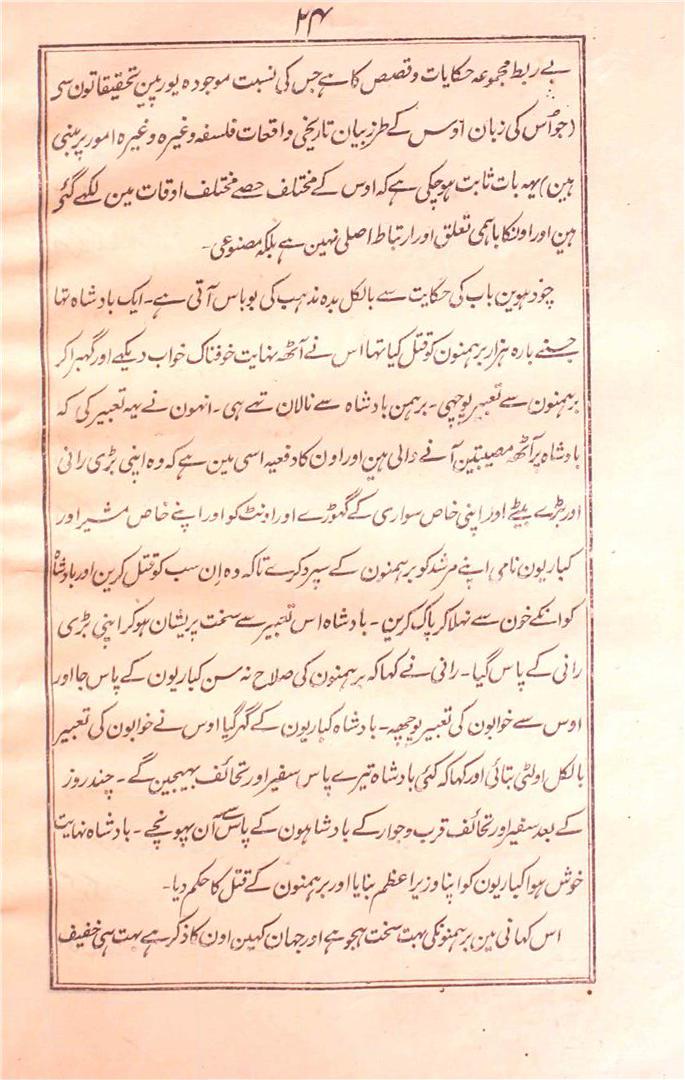 ۲۴
بے ربط مجموعہ حکایات و قصص کا ہے جس کی نسبت موجودہ یورپین تحقیقاتون سی
(جو اُس کی زبان اوس کے طرز بیان تاریخی واقعات فلسفہ وغیرہ وغیرہ امور پر مبنی
ہین) یہہ بات ثابت ہوچکی ہے کہ اوس کے مختلف حصے مختلف اوقات مین لکھے گئی
ہین اور اونکا باہمی تعلق اور ارتباط اصلی نہین ہے بلکہ مصنوعی۔
چودہوین باب کی حکایت سے بالکل بدہ مذہب کی بو باس آتی ہے۔ ایک بادشاہ تہا
جسنے بارہ ہزار برہمنون کو قتل کیا تہا اس نے آٹھہ نہایت خوفناک خواب دیکہے اور گہبراکر
برہمنون سے تعبیر پوچہی۔ برہمن بادشاہ سے نالان تہے ہی۔ انہون نے یہہ تعبیر کی کہ
بادشاہ پر آٹھہ مصیبتین آنے والی ہین اور اون کا دفعیہ اسی مین ہے کہ وہ اپنی بڑی رانی
اور بڑے بیٹے اور اپنی خاص سواری کے گھوڑے اور اونٹ کو اور اپنے خاص مشیر اور
کباریون نامی اپنے مرشد کو برہمنون کے سپرد کرے تاکہ وہ اِن سب کو قتل کرین اور بادشاہ
کو انکے خون سے نہلا کر پاک کرین۔ بادشاہ اس تعبیر سے سخت پریشان ہو کر اپنی بڑی
رانی کے پاس گیا۔ رانی نے کہا کہ برہمنون کی صلاح نہ سن کباریون کے پاس جا اور
اوس سے خوابون کی تعبیر پوچھہ۔ بادشاہ کباریون کے گہر گیا اوس نے خوابون کی تعبیر
بالکل اولٹی بتائی اور کہا کہ کئی بادشاہ تیرے پاس سفیر اور تحائف بہیجین گے۔ چند روز
کے بعد سفیر اور تحائف قرب و جوار کے بادشاہون کے پاس سے آن پہونچے۔ بادشاہ نہایت
خوش ہوا کباریون کو اپنا وزیر اعظم بنایا اور برہمنون کے قتل کا حکم دیا۔
اس کہانی مین برہمنونکی بہت سخت ہجو ہے اور جہان کہین اون کا ذکر ہے بہت ہی خفیف